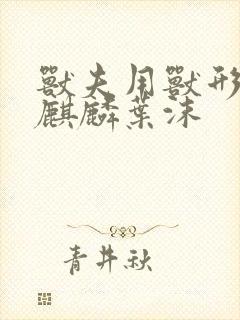 獸夫用獸形
麒麟葉沫
青井秋